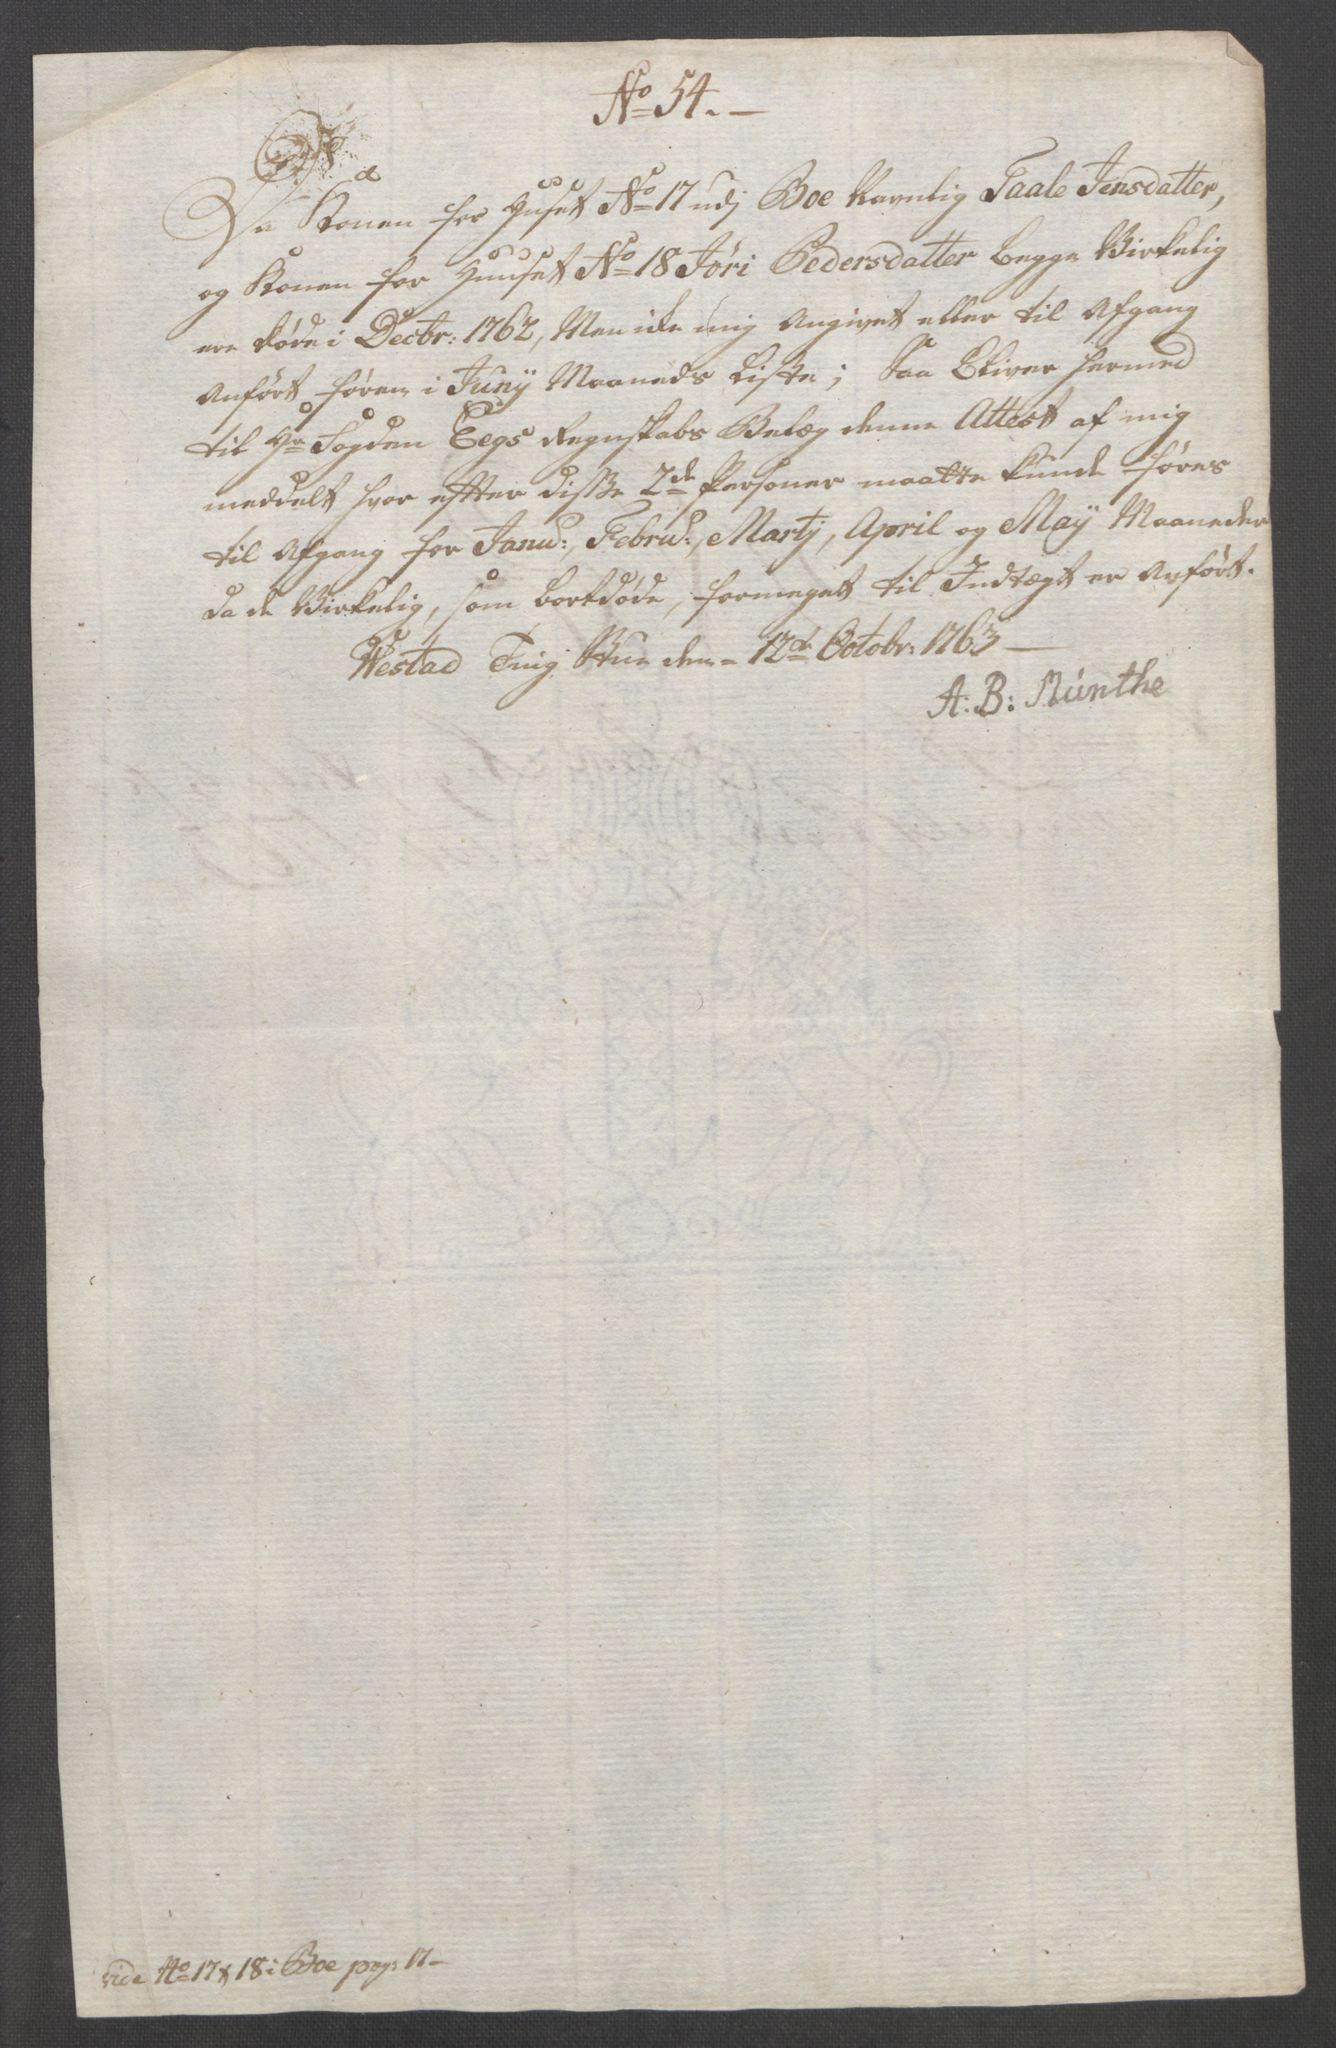 No 54. —
Da Konen for Huset No 17 udj Boe Navnlig Taale Jensdatter,
og Konen for Huuset No 18 Jöri Pedersdatter begge Virkelig
ere døde i Decbr: 1762, Men icke mig Angivet eller til Afgang
Anført førend i Junÿ Maaneds Liste; Saa Bliver hermed
til Hr Fogden Eegs Regnskabs Belæg denne Attest af mig
meddelt hvor efter disse 2de Personer maatte kunde føres
til Afgang for Janu:, Febru:, Martj, April og Maÿ Maaneder
da de Virkelig, som bortdøde, formeget til Indtægt er Anført.
Westad Ting Stue den - 12te Octobr: 1763 —
A: B: Münthe
vide No 17 & 18 i Boe pag: 17 —